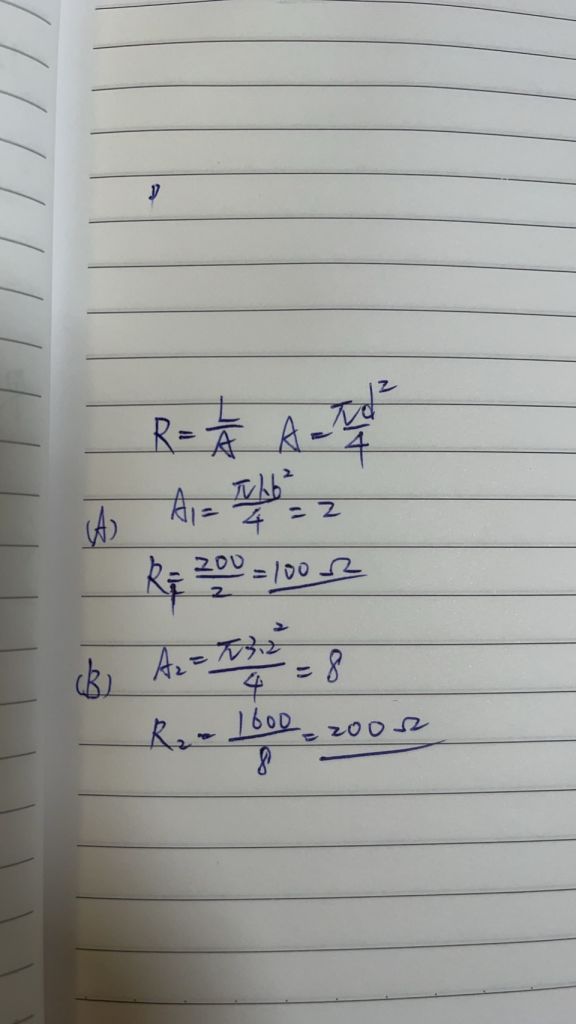 R = L/A  A = πd²/4
(A) A₁ = π1.6²/4 = 2
R₁ = 200/2 = 100 Ω
(B) A₂ = π3.2²/4 = 8
R₂ = 1600/8 = 200 Ω